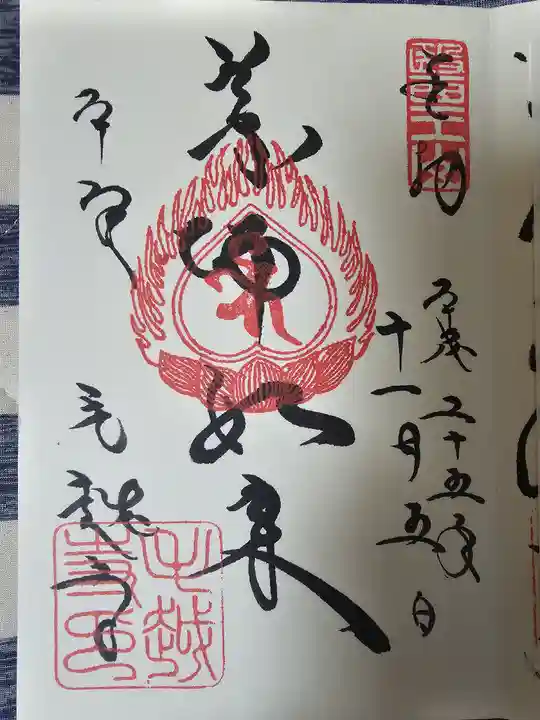 奉納
平成二十五年
十一月五日
薬師如来
平泉
毛越寺
毛越
寺印